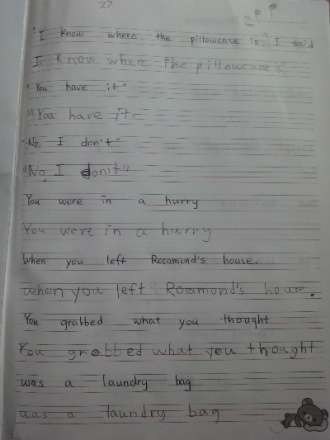 27
"I know where the pillowcase is." I said
I know where the pillowcase is
"You have it"
"You have it"
"No, I don't"
"No, I don't"
You were in a hurry
You were in a hurry
When you left Rosamond's house.
when you left Rosamond's house.
You grabbed what you thought
You grabbed what you thought
was a laundry bag
was a laundry bag